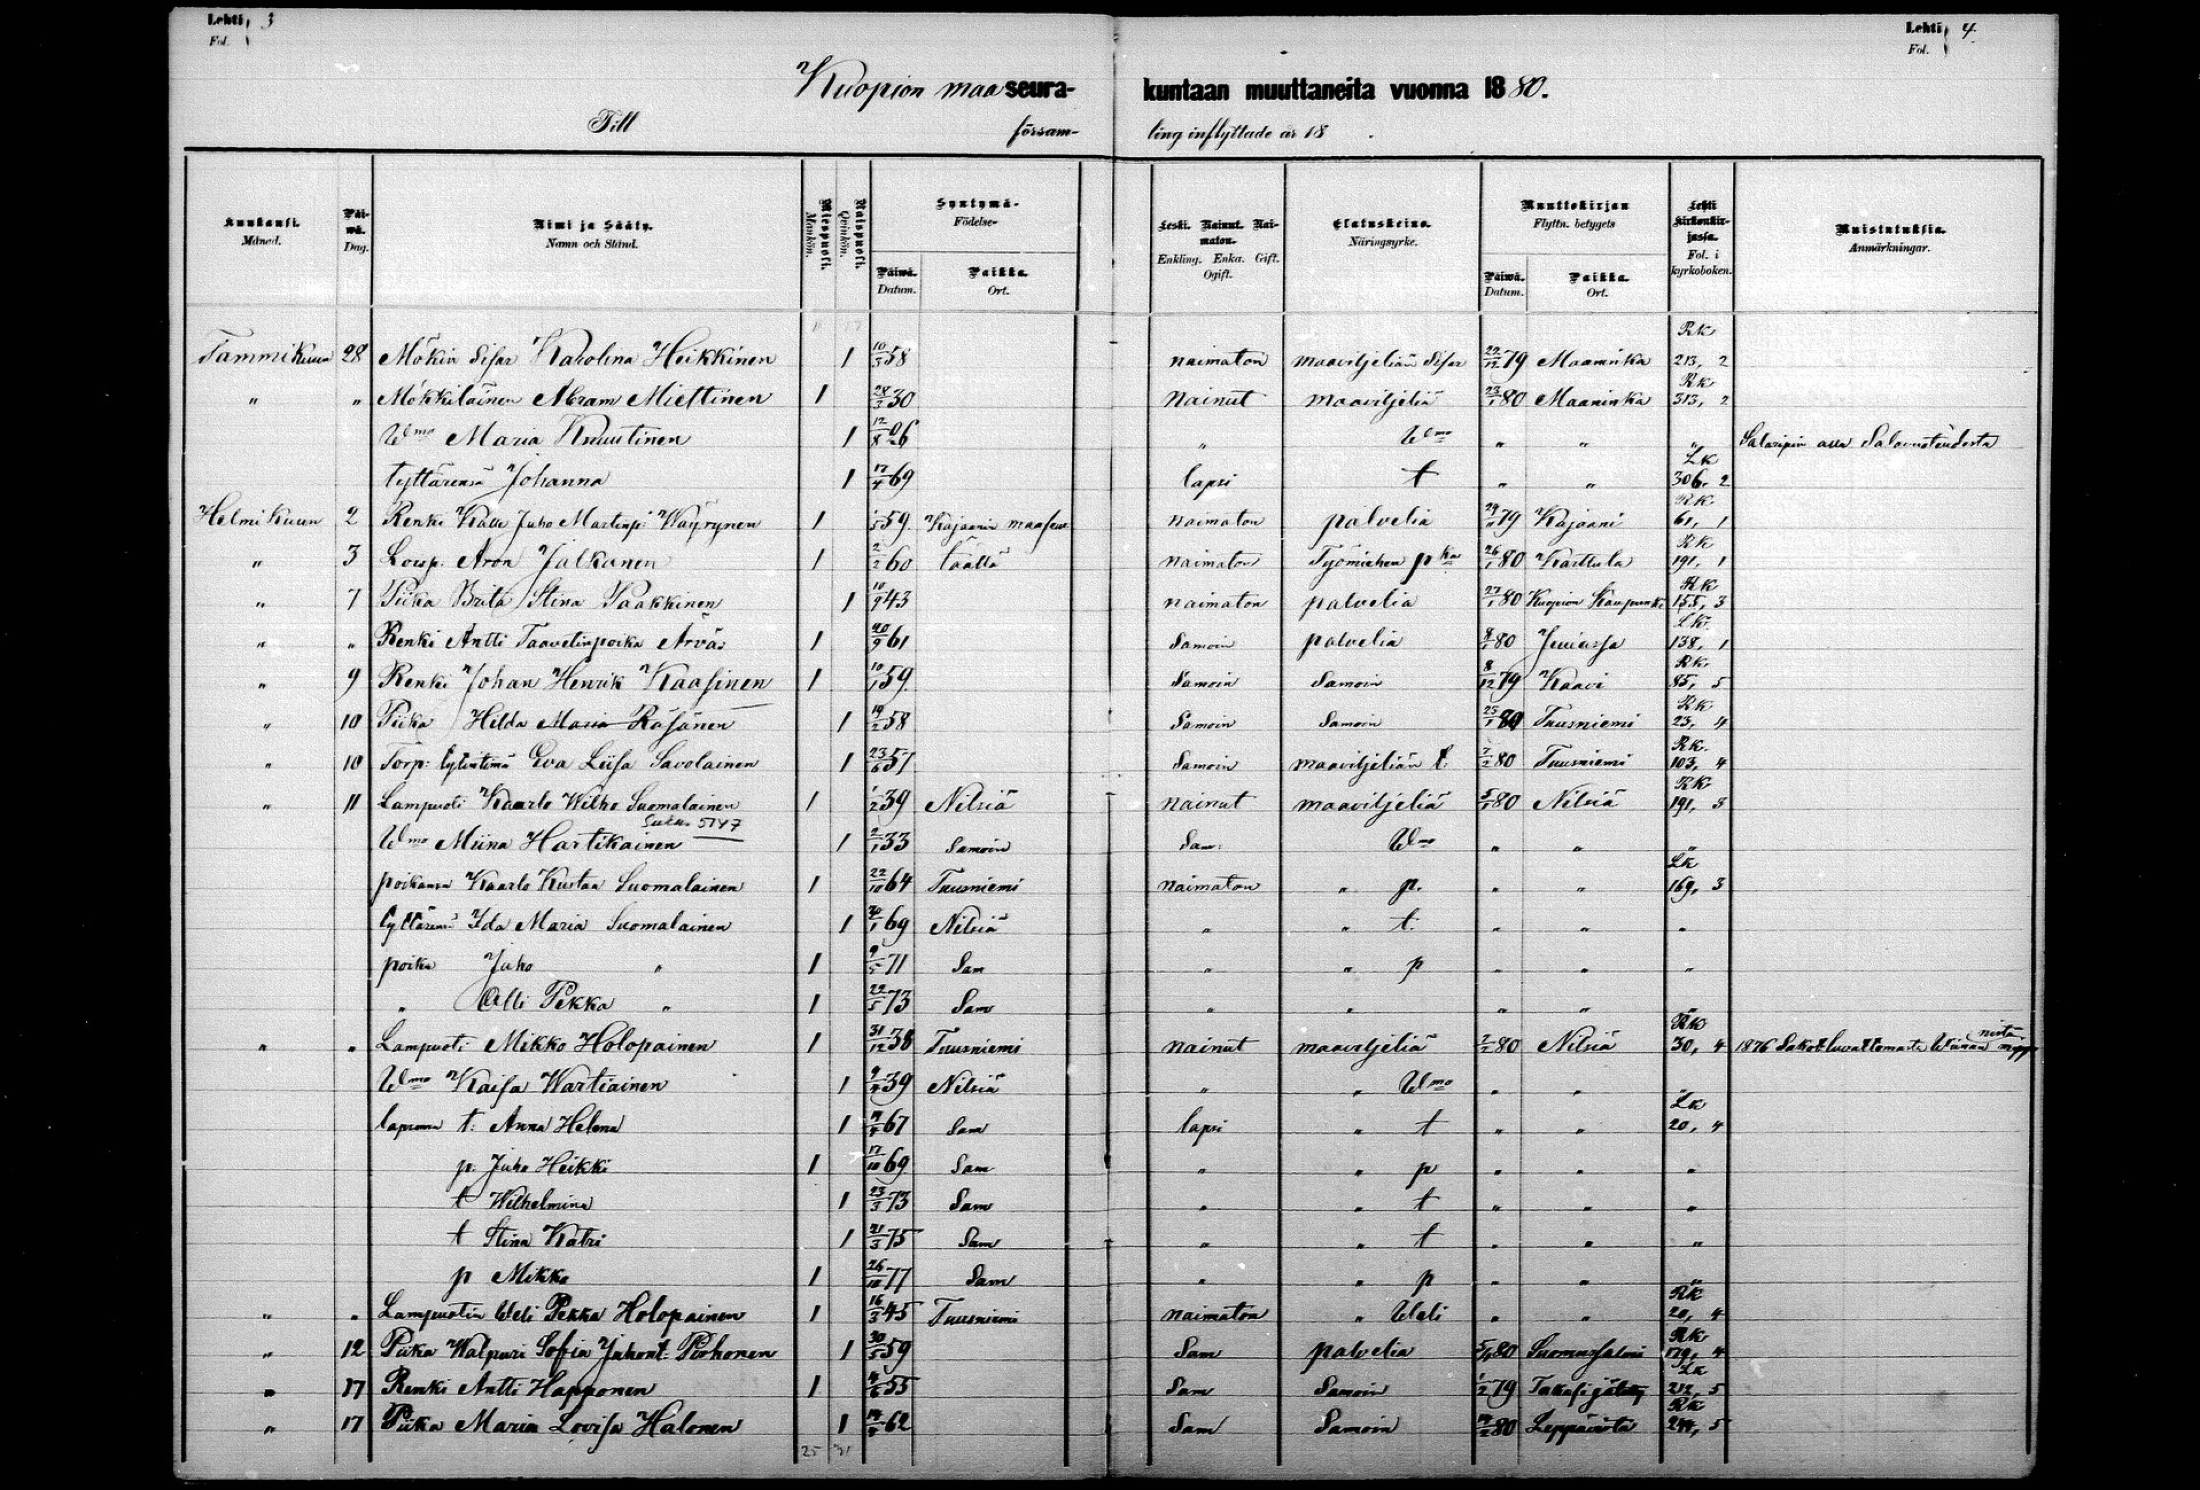 Lehti 3
Fol.
Lehti 4
Fol.
Kuopion maa seura- kuntaan muuttaneita vuonna 1880.
Till försam- ling inflyttade år 18 .
Kuukausi. Månad.
Päi-wä. Dag.
Nimi ja Sääty. Namn och Stånd.
Miespuoli. Mankön.
Naispuoli. Qvinkön.
Syntymä- Födelse-
Päiwä. Datum.
Paikka. Ort.
Leski. Nainut. Nai-maton. Enkling. Enka. Gift. Ogift.
Elatuskeino. Näringsyrke.
Muuttokirjan Flyttn. betygets
Päiwä. Datum.
Paikka. Ort.
Lehti kirkonkir-jassa. Fol. i kyrkoboken.
Muistutuksia. Anmärkningar.
Tammikuun 28 Mökin Sisar Karolina Heikkinen 1 10/3 58 naimaton maaviljeliän Sisar 22/12 79 Maaninka Rk 213, 2
" " Mökkiläinen Abram Miettinen 1 28/3 30 Nainut maaviljeliä 23/1 80 Maaninka Rk 313, 2
Wmo Maria Knuutinen 1 12/8 26 " Wmo " " "
tyttärensä Johanna 1 17/4 69 lapsi t " " Lk 306, 2
Helmikuun 2 Renki Kalle Juho Martinp: Wäyrynen 1 1/5 59 Kajaanin maaseur naimaton palvelia 29/11 79 Kajaani Rk 61, 1
" 3 Loisp. Aron Jalkanen 1 2/2 60 täältä naimaton Työmiehen pka 26/1 80 Karttula Rk 191, 1
" 7 Piika Brita Stina Paakkinen 1 10/9 43 naimaton palvelia 27/1 80 Kuopion Kaupunki Rk 155, 3
" " Renki Antti Taavetinpoika Arvas 1 20/9 61 Samoin palvelia 8/1 80 Lk 138, 1
" 9 Renki Johan Henrik Kaasinen 1 10/1 59 Samoin Samoin 8/12 79 Kaavi Rk 85, 5
" 10 Piika Hilda Maria Räsänen 1 19/2 58 Samoin Samoin 25/1 80 Tuusniemi Rk 23, 4
" 10 Torp: Eva Liisa Savolainen 1 23/6 57 Samoin maaviljeliän t: 7/2 80 Tuusniemi Rk 103, 4
" 11 Lampuoti Kaarlo Wilho Suomalainen 1 1/2 39 Nilsiä nainut maaviljeliä 5/1 80 Nilsiä Rk 191, 3
5147
Wmo Miina Hartikainen 1 2/1 33 Samoin Sam: Wmo " " "
poikansa Kaarlo Kustaa Suomalainen 1 22/10 64 Tuusniemi naimaton " p. " " Lk 169, 3
tyttärensä Ida Maria Suomalainen 1 20/1 69 Nilsiä " " t. " " "
poika Juho " 1 9/5 71 Sam " " p " " "
" Olli Pekka " 1 22/5 73 Sam " " " " "
" " Lampuoti Mikko Holopainen 1 31/12 38 Tuusniemi nainut maaviljeliä 2/2 80 Nilsiä Rk 30, 4 1876 Sakot luvattomasta Wiinan
Wmo Kaisa Wartiainen 1 9/4 39 Nilsiä " " Wmo " " "
lapsensa t: Anna Helena 1 19/4 67 Sam lapsi " t " " Lk 20, 4
p. Juho Heikki 1 17/10 69 Sam " " p " " "
t Wilhelmina 1 23/3 73 Sam " " t " " "
t Stina Katri 1 21/3 75 Sam " " t " " "
p Mikko 1 26/10 77 Sam " " p " " "
" " Lampuotin Weli Pekka Holopainen 1 16/3 45 Tuusniemi naimaton " Weli " " Rk 20, 4
" 12 Piika Walpuri Sofia Juhont: Pirhonen 1 30/5 59 Sam palvelia 5/1 80 Suomussalmi Rk 179, 4
" 17 Renki Antti Happonen 1 4/6 55 Sam Samoin 1/2 79 Lk 212, 5
" 17 Piika Maria Lovisa Halonen 1 14/4 62 Sam Samoin 14/2 80 Leppävirta Rk 244, 5
25